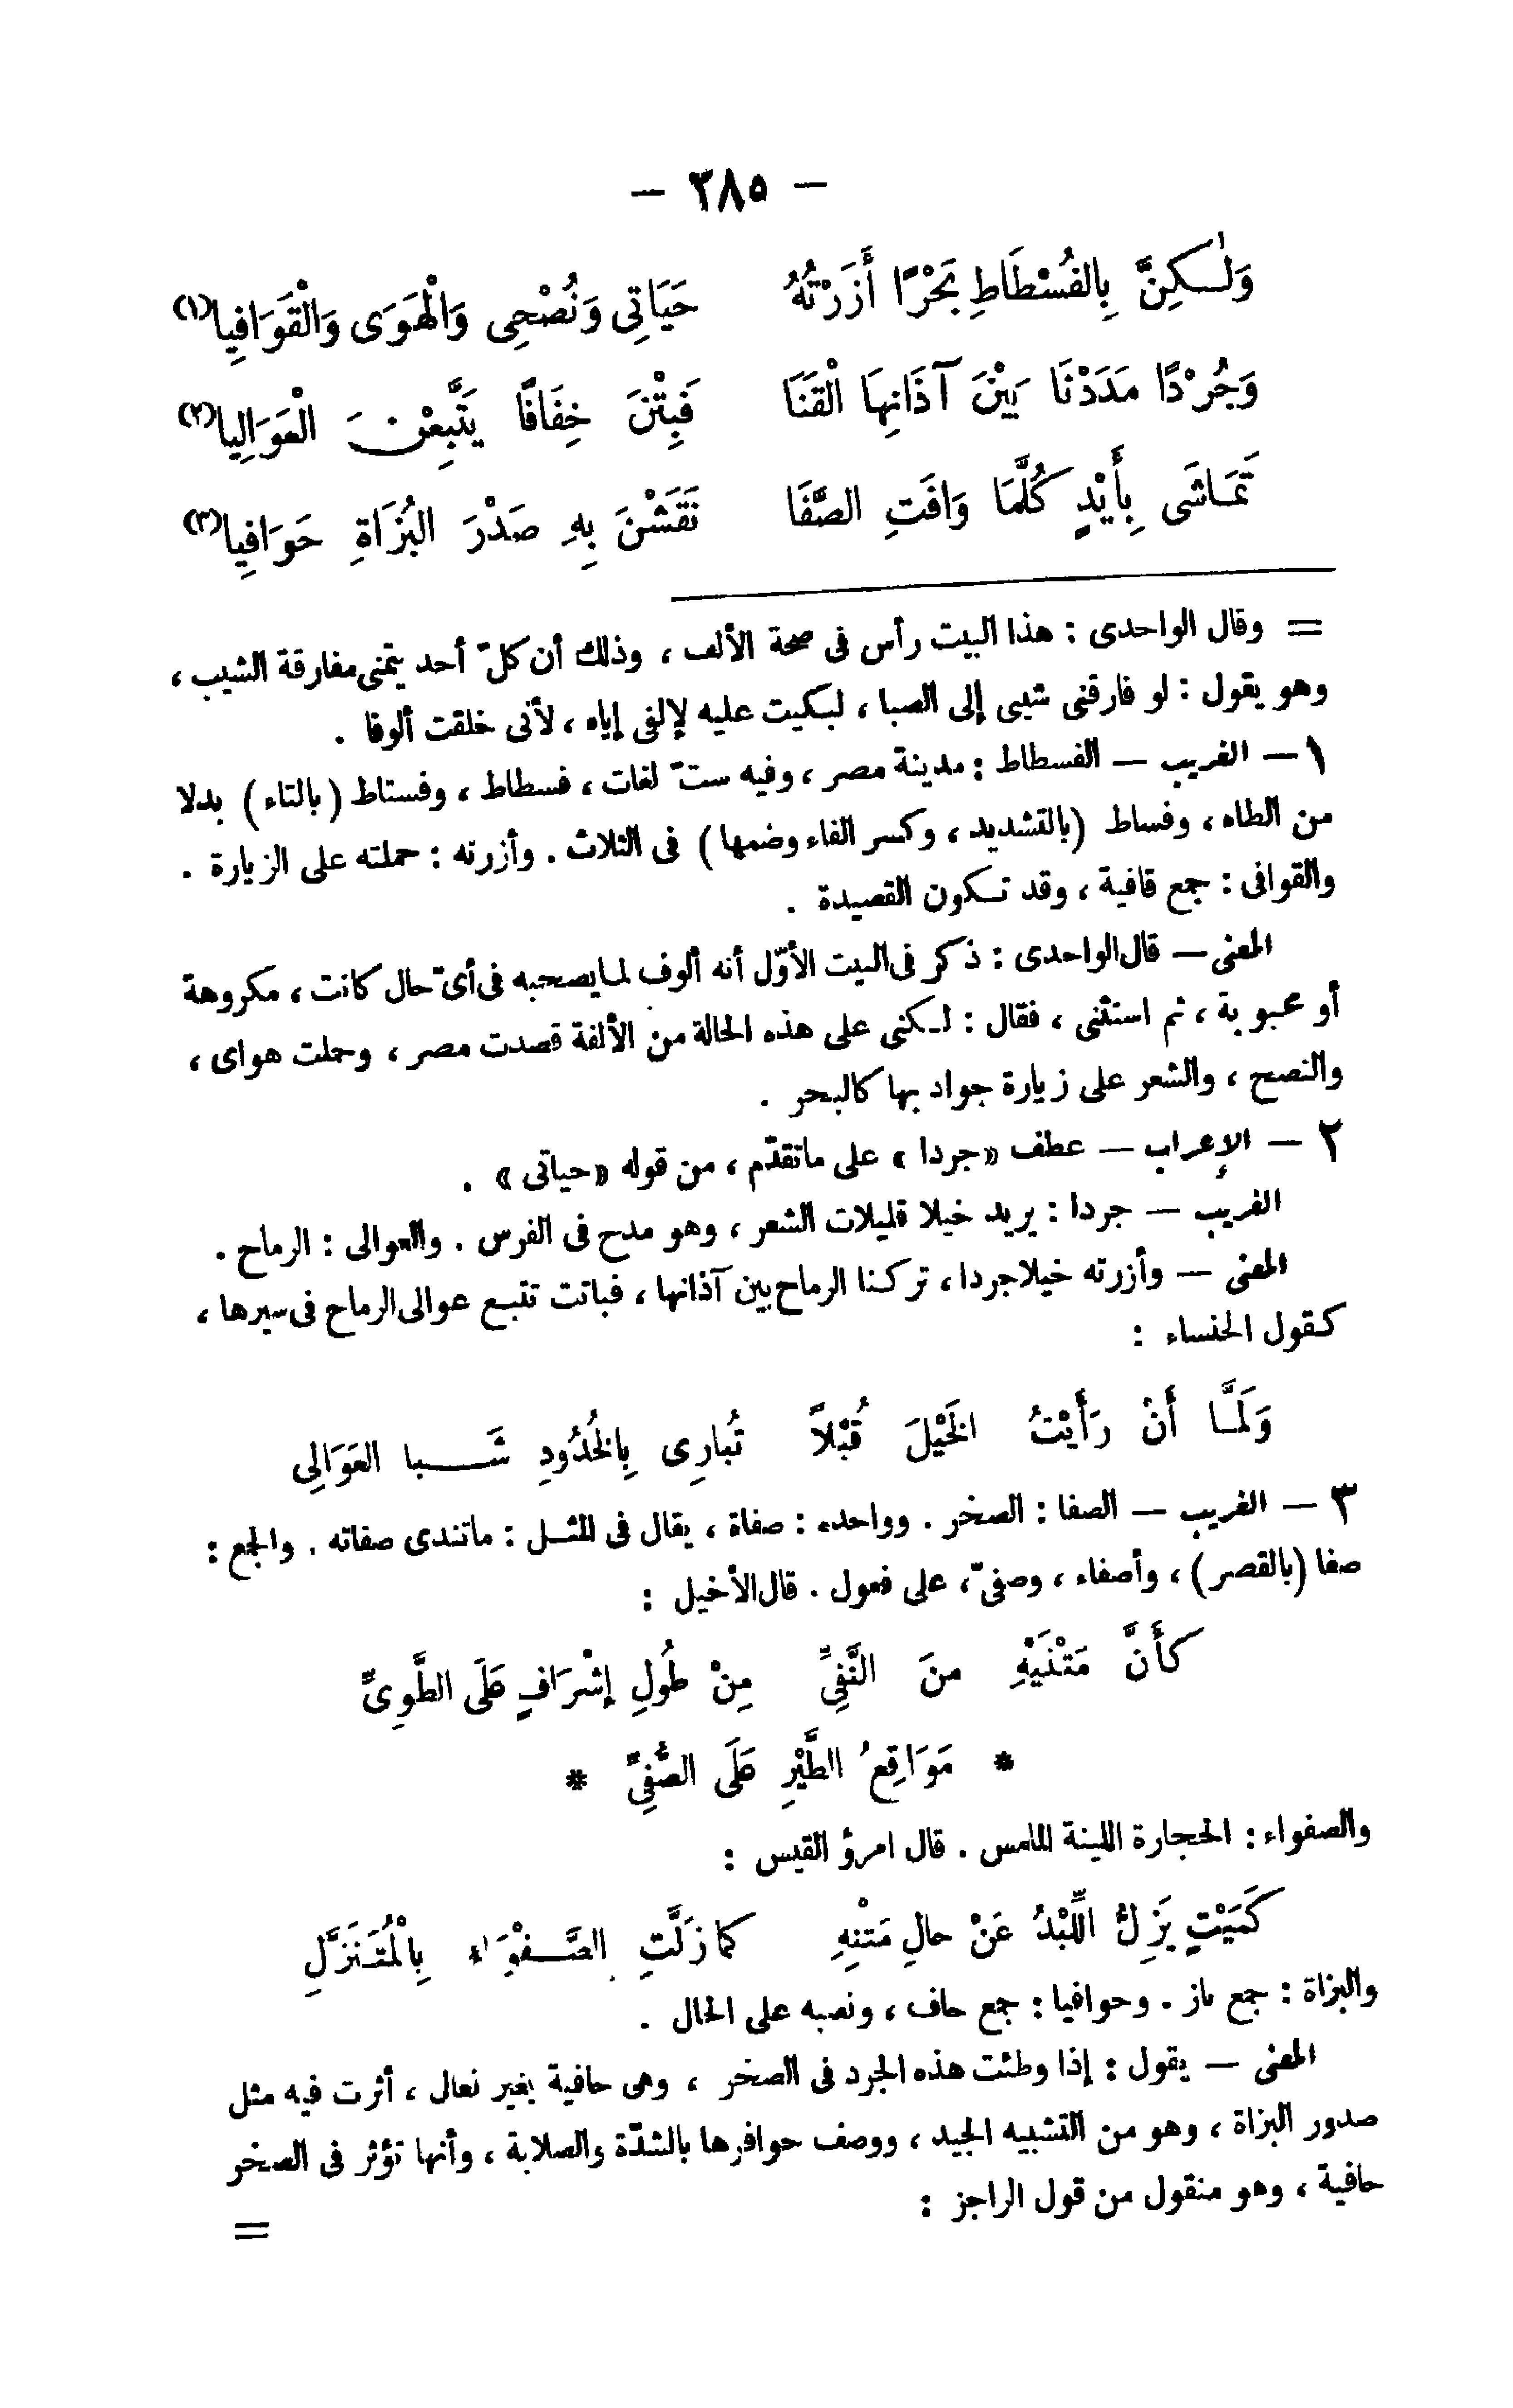 — ٢٨٥ —
وَلٰكِنَّ بِالفُسْطَاطِ بَحْرًا أَزَرْتُهُ حَيَاتِى وَنُصْحِى وَالْهَوَى وَالْقَوَافِيا(١)
وَجُرْدًا مَدَدْنَا بَيْنَ آذَانِهَا الْقَنَا فَبِتْنَ خِفَافًا يَتَّبِعْنَ الْعَوَالِيا(٢)
تَمَاشَى بِأَيْدٍ كُلَّمَا وَافَتِ الصَّفَا نَقَشْنَ بِهِ صَدْرَ البُزَاةِ حَوَافِيا(٣)
= وقال الواحدى : هذا البيت رأس فى صحة الألف ، وذلك أن كلّ أحد يتمنى مفارقة الشيب ،
وهو يقول : لو فارقنى شيبى إلى الصبا ، لبكيت عليه لإلفى إياه ، لأنى خلقت ألوفا .
١ — الغريب — الفسطاط : مدينة مصر ، وفيه ستّ لغات ، فسطاط ، وفستاط (بالتاء) بدلا
من الطاء ، وفساط (بالتشديد ، وكسر الفاء وضمها) فى الثلاث . وأزرته : حملته على الزيارة .
والقوافى : جمع قافية ، وقد تكون القصيدة .
المعنى — قال الواحدى : ذكر فى البيت الأوّل أنه ألوف لما يصحبه فى أىّ حال كانت ، مكروهة
أو محبوبة ، ثم استثنى ، فقال : لكنى على هذه الحالة من الألفة قصدت مصر ، وحملت هواى ،
والنصح ، والشعر على زيارة جواد بها كالبحر .
٢ — الإعراب — عطف «جردا» على ما تقدّم ، من قوله «حياتى» .
الغريب — جردا : يريد خيلا قليلات الشعر ، وهو مدح فى الفرس . والعوالى : الرماح .
المعنى — وأزرته خيلا جردا ، تركنا الرماح بين آذانها ، فباتت تتبع عوالى الرماح فى سيرها ،
كقول الخنساء :
وَلَمَّا أَنْ رَأَيْتُ الخَيْلَ قُبْلاً تُبارِى بِالخُدُودِ شَبا العَوَالِى
٣ — الغريب — الصفا : الصخر . وواحده : صفاة ، يقال فى المثل : ماتندى صفاته . والجمع :
صفا (بالقصر) ، وأصفاء ، وصفىّ ، على فعول . قال الأخيل :
كَأَنَّ مَتْنَيْهِ منَ النَّفِىِّ مِنْ طُولِ إِشْرَافٍ عَلَى الطَّوِىِّ
* مَوَاقِعُ الطَّيْرِ عَلَى الصُّفِىِّ *
والصفواء : الحجارة اللينة الملمس . قال امرؤ القيس :
كُمَيْتٍ يَزِلُّ اللِّبْدُ عَنْ حالِ مَتْنِهِ كما زَلَّتِ الصَّفْوَاء بِالْمُتَنَزَّلِ
والبزاة : جمع باز . وحوافيا : جمع حاف ، ونصبه على الحال .
المعنى — يقول : إذا وطئت هذه الجرد فى الصخر ، وهى حافية بغير نعال ، أثرت فيه مثل
صدور البزاة ، وهو من التشبيه الجيد ، ووصف حوافرها بالشدّة والصلابة ، وأنها تؤثر فى الصخر
حافية ، وهو منقول من قول الراجز :
=